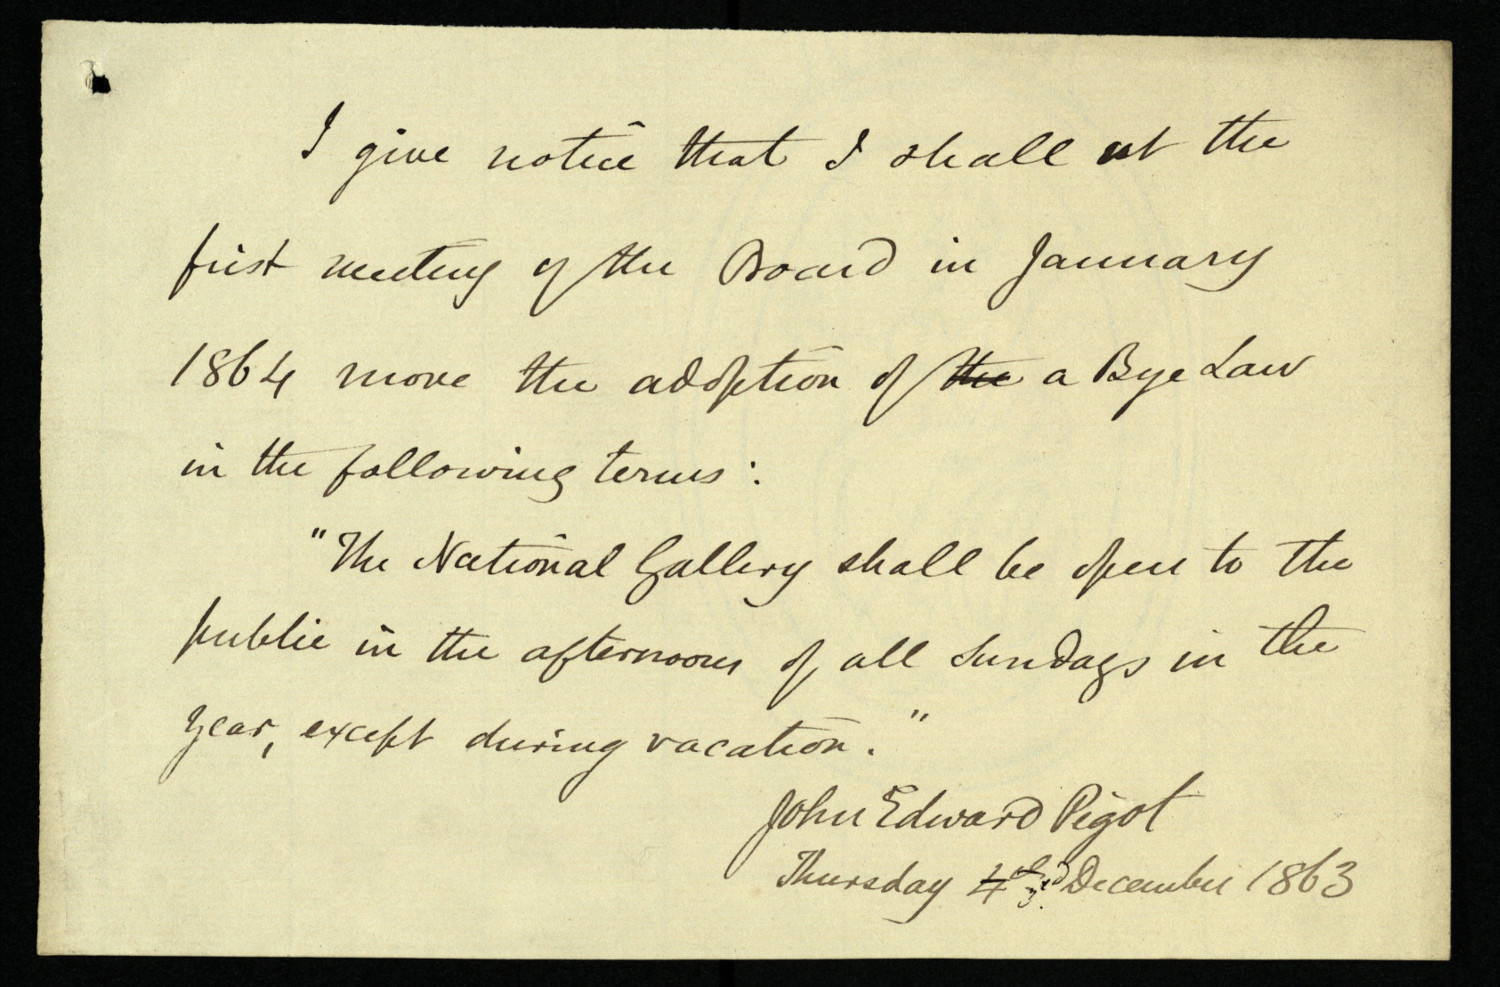 I give notice that I shall at the
first meeting of the Board in January
1864 move the adoption of the a Bye Law
in the following terms:
"The National Gallery shall be open to the
public in the afternoons of all Sundays in the
year, except during vacation."
John Edward Pigot
Thursday 4th 3rd December 1863